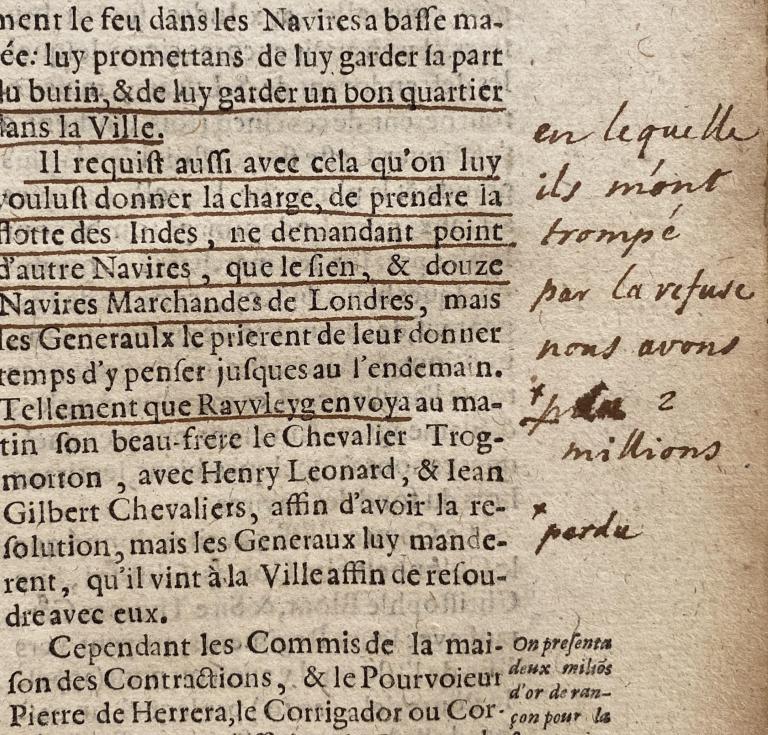 ment le feu dans les Navires a basse ma-
ée: luy promettans de luy garder sa part
du butin, & de luy garder un bon quartier
dans la Ville.
Il requist aussi avec cela qu'on luy
voulust donner la charge, de prendre la
flotte des Indes, ne demandant point
d'autre Navires, que le sien, & douze
Navires Marchandes de Londres, mais
les Generaulx le prierent de leur donner
temps d'y penser jusques au l'endemain.
Tellement que Ravvleyg envoya au ma-
tin son beau-frere le Chevalier Trog-
morton, avec Henry Leonard, & Iean
Gilbert Chevaliers, affin d'avoir la re-
solution, mais les Generaux luy mande-
rent, qu'il vint à la Ville affin de resou-
dre avec eux.
Cependant les Commis de la mai-
son des Contractions, & le Pourvoieur
Pierre de Herrera, le Corrigador ou Cor-
en lequelle
ils m'ont
trompé
par la refuse
nous avons
* 2
millions
* perdu
On presenta
deux miliõs
d'or de ran-
çon pour la